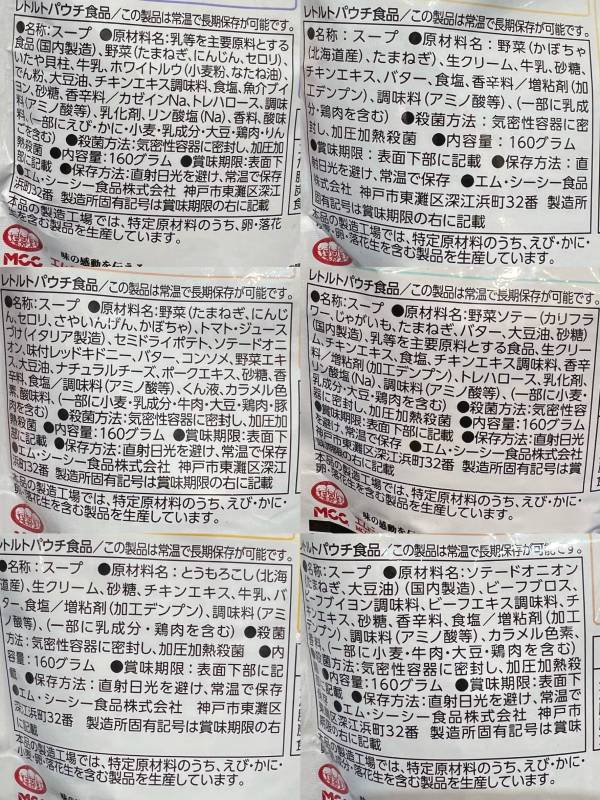 レトルトパウチ食品/この製品は常温で長期保存が可能です。
●名称:スープ ●原材料名:乳等を主要原料とする
食品(国内製造)、野菜(たまねぎ、にんじん、セロリ)、
いたや貝柱、牛乳、ホワイトルウ(小麦粉、なたね油)、
でん粉、大豆油、チキンエキス調味料、食塩、魚介ブイ
ヨン、砂糖、香辛料/カゼインNa、トレハロース、調味
料(アミノ酸等)、乳化剤、リン酸塩(Na)、香料、酸味
料、(一部にえび・かに・小麦・乳成分・大豆・鶏肉・りん
ごを含む) ●殺菌方法:気密性容器に密封し、加圧加
熱殺菌 ●内容量:160グラム ●賞味期限:表面下
部に記載 ●保存方法:直射日光を避け、常温で保存
●エム・シーシー食品株式会社 神戸市東灘区深江
浜町32番 製造所固有記号は賞味期限の右に記載
本品の製造工場では、特定原材料のうち、卵・落花
生を含む製品を生産しています。
MCC 味の感動を伝える
レトルトパウチ食品/この製品は常温で長期保存が可能です。
●名称:スープ ●原材料名:野菜(かぼちゃ
(北海道産)、たまねぎ)、生クリーム、牛乳、砂糖、
チキンエキス、バター、食塩、香辛料/増粘剤(加
工デンプン)、調味料(アミノ酸等)、(一部に乳成
分・鶏肉を含む) ●殺菌方法:気密性容器に密
封し、加圧加熱殺菌 ●内容量:160グラム
●賞味期限:表面下部に記載 ●保存方法:直
射日光を避け、常温で保存 ●エム・シーシー食品
株式会社 神戸市東灘区深江浜町32番 製造所
固有記号は賞味期限の右に記載
本品の製造工場では、特定原材料のうち、えび・かに・
小麦・卵・落花生を含む製品を生産しています。
レトルトパウチ食品/この製品は常温で長期保存が可能です。
●名称:スープ ●原材料名:野菜(たまねぎ、にんじ
ん、セロリ、さやいんげん、かぼちゃ)、トマト・ジュース
づけ(イタリア製造)、セミドライポテト、ソテードオニ
オン、味付レッドキドニー、バター、コンソメ、野菜エキ
ス、大豆油、ナチュラルチーズ、ポークエキス、砂糖、香
辛料、食塩/調味料(アミノ酸等)、くん液、カラメル色
素、酸味料、(一部に小麦・乳成分・牛肉・大豆・鶏肉・豚
肉を含む) ●殺菌方法:気密性容器に密封し、加圧加
熱殺菌 ●内容量:160グラム ●賞味期限:表面下
部に記載 ●保存方法:直射日光を避け、常温で保存
●エム・シーシー食品株式会社 神戸市東灘区深江
浜町32番 製造所固有記号は賞味期限の右に記載
本品の製造工場では、特定原材料のうち、えび・かに・
卵・落花生を含む製品を生産しています。
MCC 味の感動を
レトルトパウチ食品/この製品は常温で長期保存が可能です。
●名称:スープ ●原材料名:野菜ソテー(カリフラ
ワー、じゃがいも、たまねぎ、バター、大豆油、砂糖)
(国内製造)、乳等を主要原料とする食品、生クリー
ム、チキンエキス、食塩、チキンエキス調味料、香辛
料/増粘剤(加工デンプン)、トレハロース、乳化剤、
リン酸塩(Na)、調味料(アミノ酸等)、(一部に小麦・
乳成分・大豆・鶏肉を含む) ●殺菌方法:気密性容
器に密封し、加圧加熱殺菌 ●内容量:160グラム
●賞味期限:表面下部に記載 ●保存方法:直射日光
を避け、常温で保存 ●エム・シーシー食品株式会社
神戸市東灘区深江浜町32番 製造所固有記号は賞
味期限の右に記載
本品の製造工場では、特定原材料のうち、えび・かに・
卵・落花生を含む製品を生産しています。
MCC 味の感動を伝
レトルトパウチ食品/この製品は常温で長期保存が可能です。
●名称:スープ ●原材料名:とうもろこし(北海
道産)、生クリーム、砂糖、チキンエキス、牛乳、バ
ター、食塩/増粘剤(加工デンプン)、調味料(アミ
ノ酸等)、(一部に乳成分・鶏肉を含む) ●殺菌
方法:気密性容器に密封し、加圧加熱殺菌 ●内
容量:160グラム ●賞味期限:表面下部に記
載 ●保存方法:直射日光を避け、常温で保存
●エム・シーシー食品株式会社 神戸市東灘区
深江浜町32番 製造所固有記号は賞味期限の右
に記載
本品の製造工場では、特定原材料のうち、えび・かに・
小麦・卵・落花生を含む製品を生産しています。
レトルトパウチ食品/この製品は常温で長期保存が可能です。
●名称:スープ ●原材料名:ソテードオニオン
(たまねぎ、大豆油)(国内製造)、ビーフブロス、
ビーフブイヨン調味料、ビーフエキス調味料、チ
キンエキス、砂糖、香辛料、食塩/増粘剤(加工
デンプン)、調味料(アミノ酸等)、カラメル色素、
香料、(一部に小麦・牛肉・大豆・鶏肉を含む)
●殺菌方法:気密性容器に密封し、加圧加熱殺
菌 ●内容量:160グラム ●賞味期限:表面下
部に記載 ●保存方法:直射日光を避け、常温で
保存 ●エム・シーシー食品株式会社 神戸市
東灘区深江浜町32番 製造所固有記号は賞味
期限の右に記載
本品の製造工場では、特定原材料のうち、えび・かに・
卵・乳成分・落花生を含む製品を生産しています。
MCC